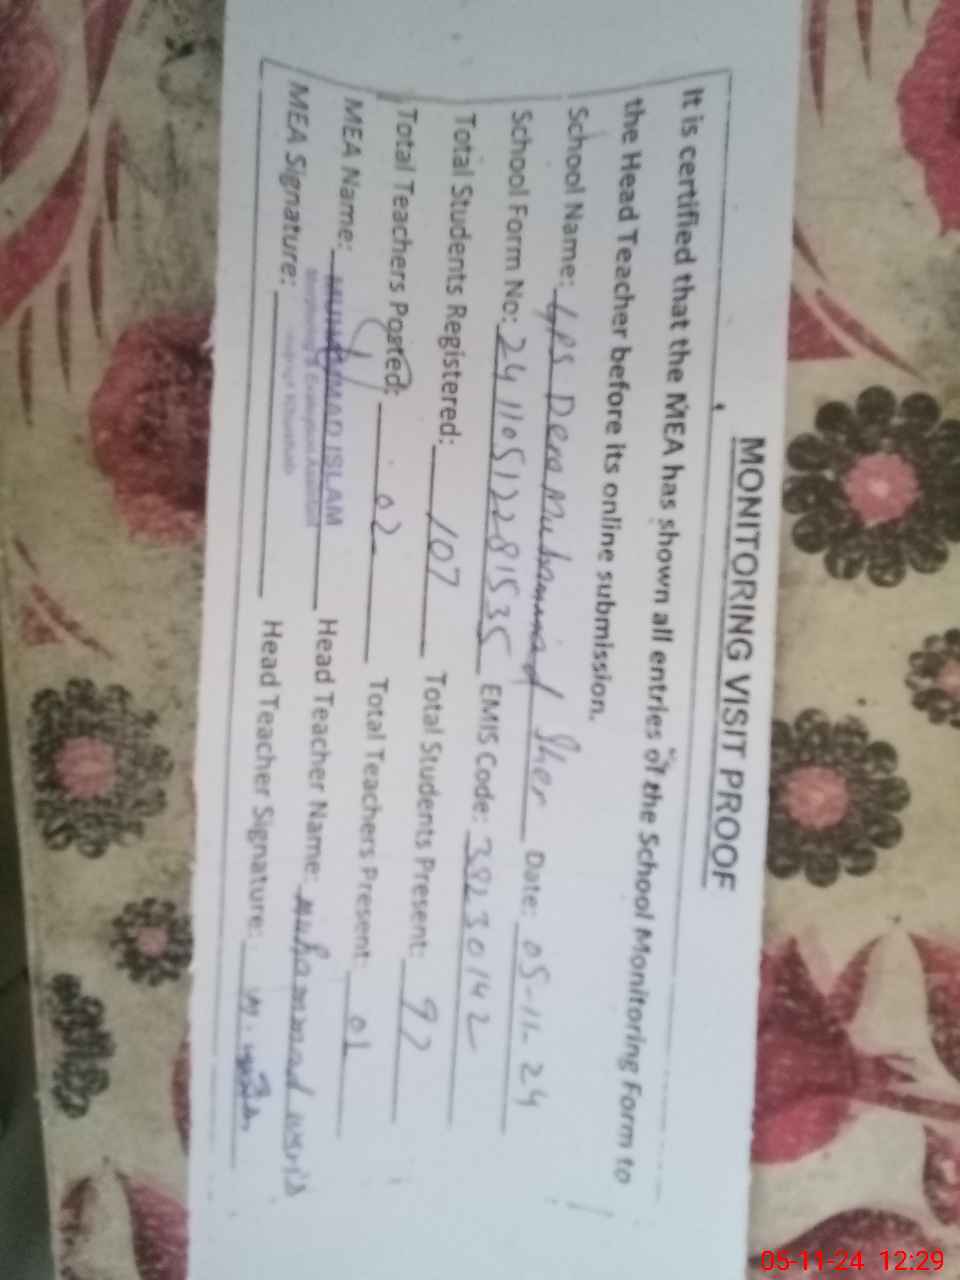 MONITORING VISIT PROOF
It is certified that the MEA has shown all entries of the School Monitoring Form to
the Head Teacher before its online submission.
School Name: GPS Dera Muhammad Sher Date: 05-11-24
School Form No: 24110512281535 EMIS Code: 38230142
Total Students Registered: 107 Total Students Present: 97
Total Teachers Posted: 02 Total Teachers Present: 01
MEA Name: MUHAMMAD ISLAM Head Teacher Name: Muhammad
Monitoring & Evaluation Assistant
MEA Signature: Head Teacher Signature:
05-11-24 12:29